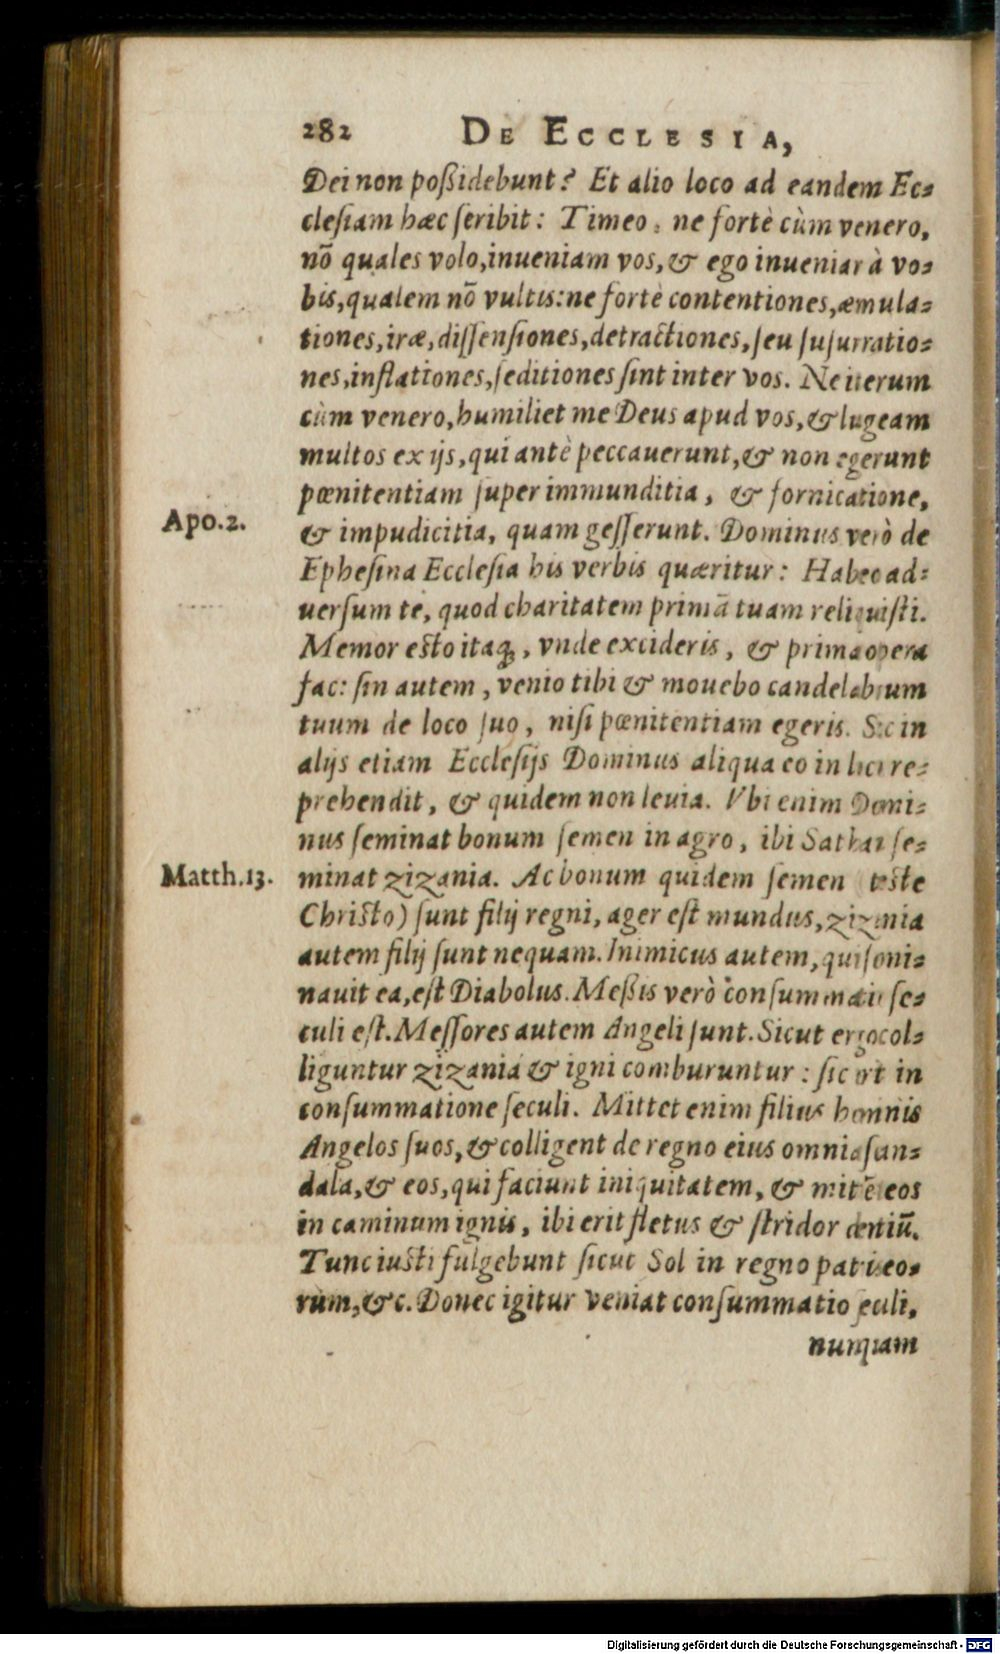 282 DE ECCLESIA,
Dei non poßidebunt? Et alio loco ad eandem Ec-
clesiam hæc scribit: Timeo, ne fortè cùm venero,
nō quales volo, inueniam vos, & ego inueniar à vo-
bis, qualem nō vultis: ne fortè contentiones, æmula-
tiones, iræ, dissensiones, detractiones, seu susurratio-
nes, inflationes, seditiones sint inter vos. Ne iterum
cùm venero, humiliet me Deus apud vos, & lugeam
multos ex ijs, qui antè peccauerunt, & non egerunt
pœnitentiam super immunditia, & fornicatione,
Apo.2. & impudicitia, quam gesserunt. Dominus verò de
Ephesina Ecclesia his verbis quæritur: Habeo ad-
uersum te, quod charitatem primā tuam reliquisti.
Memor esto itaq;, vnde excideris, & prima opera
fac: sin autem, venio tibi & mouebo candelabrum
tuum de loco suo, nisi pœnitentiam egeris. Sic in
alijs etiam Ecclesijs Dominus aliqua eo in loco re-
prehendit, & quidem non leuia. Vbi enim Domi-
nus seminat bonum semen in agro, ibi Sathan se-
Matth.13. minat zizania. Ac bonum quidem semen (teste
Christo) sunt filij regni, ager est mundus, zizania
autem filij sunt nequam. Inimicus autem, qui semi-
nauit ea, est Diabolus. Meßis verò consummatio se-
culi est. Messores autem Angeli sunt. Sicut ergo col-
liguntur zizania & igni comburuntur: sic erit in
consummatione seculi. Mittet enim filius hominis
Angelos suos, & colligent de regno eius omnia scan-
dala, & eos, qui faciunt iniquitatem, & mittēt eos
in caminum ignis, ibi erit fletus & stridor dentiū.
Tunc iusti fulgebunt sicut Sol in regno patris eo-
rum, &c. Donec igitur veniat consummatio seculi,
nunquam
Digitalisierung gefördert durch die Deutsche Forschungsgemeinschaft - DFG